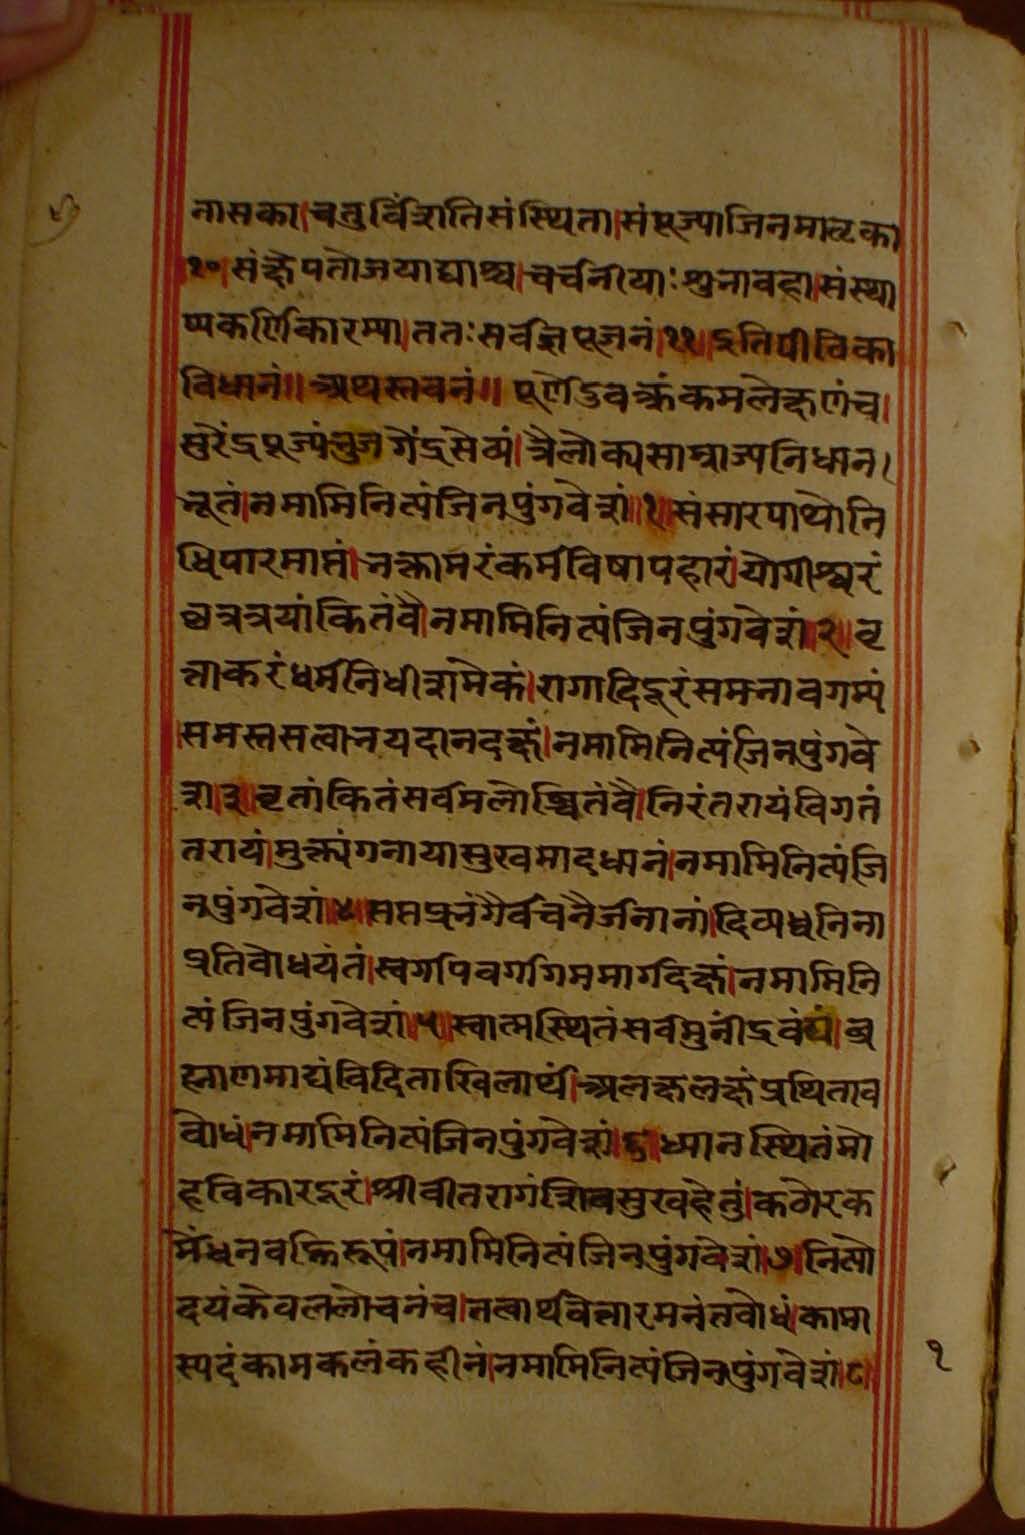 नासका।चतुर्विंशतिसंस्थिता।संपूज्याजिनमातृका
१०।संक्षेपतोजयाद्याश्च।चर्चनीयाःशुभावहा।संस्था
प्यकर्णिकारम्या।ततःसर्वज्ञपूजनं।११।इतिपीठिका
विधानं॥अथस्तवनं॥पूर्णेंडुवक्त्रंकमलेक्षणंच।
सुरेंद्रपूज्यंभुजगेंद्रसेव्यं।त्रैलोक्यसाम्राज्यनिधान।
भूतं।नमामिनित्यंजिनपुंगवेशं।१।संसारपाथोनि
धिपारमाप्तं।भक्तामरंकर्मविषापहारं।योगीश्वरं
छत्रत्रयांकितंवै।नमामिनित्यंजिनपुंगवेशं।२।वृ
त्ताकरंधर्मनिधीशमेकं।रागादिदूरंसमभावगम्यं
।समस्तसत्वाभयदानदक्षं।नमामिनित्यंजिनपुंगवे
शं।३।वृतांकितंसर्वमलोझ्झितंवै।निरंतरायंविगतं
तरायं।मुक्त्यंगनायासुखमादधानं।नमामिनित्यंजि
नपुंगवेशं।४।सप्तप्रभंगैर्वचनैर्जनानां।दिव्यध्वनिना
प्रतिबोधयंतं।स्वर्गापवर्गागिममार्गदक्षं।नमामिनि
त्यंजिनपुंगवेशं।५।स्वात्मस्थितंसर्वमुनींद्रवंद्यं।ब्र
ह्माणमाद्यंविदिताखिलार्थं।अलक्षलक्षंप्रथिताव
बोधं।नमामिनित्यंजिनपुंगवेशं।६।ध्यानस्थितंमो
हविकारदूरं।श्रीवीतरागंशिवसुखहेतुं।कठोरक
र्मेंधनवह्निरूपं।नमामिनित्यंजिनपुंगवेशं।७।नित्यो
दयंकेवललोचनंच।तत्वार्थवेत्तारमनंतबोधं।कामा
स्पदंकामकलंकहीनं।नमामिनित्यंजिनपुंगवेशं।८।
१